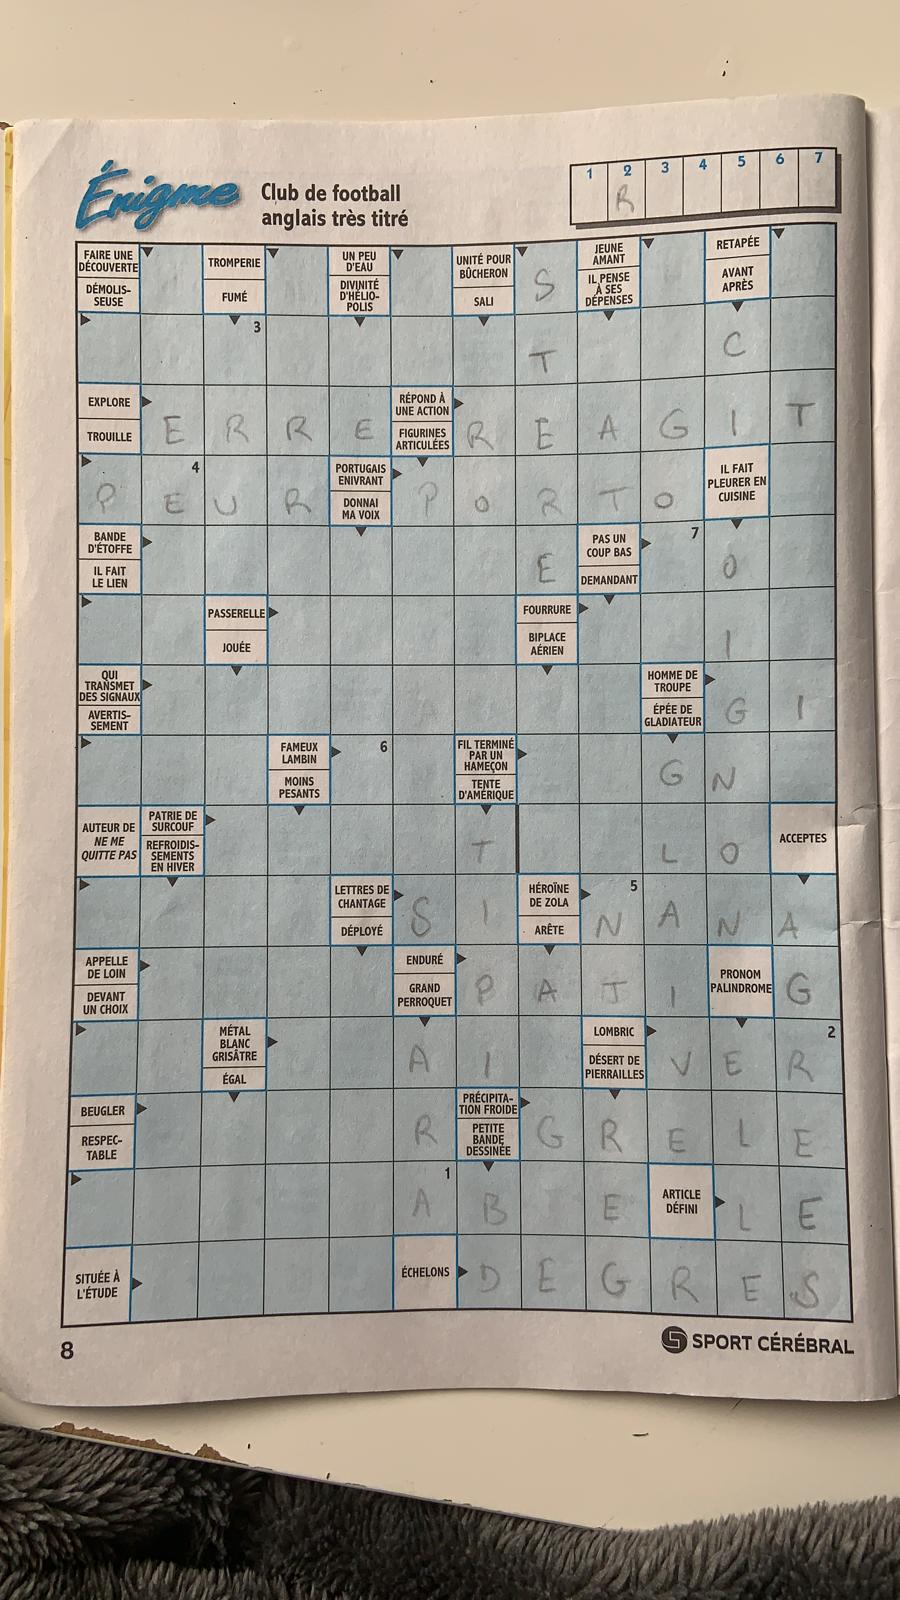 Énigme
Club de football
anglais très titré
1 2 3 4 5 6 7
R
FAIRE UNE
DÉCOUVERTE
DÉMOLIS-
SEUSE
TROMPERIE
FUMÉ
UN PEU
D'EAU
DIVINITÉ
D'HÉLIO-
POLIS
UNITÉ POUR
BÛCHERON
SALI
S
JEUNE
AMANT
IL PENSE
À SES
DÉPENSES
RETAPÉE
AVANT
APRÈS
3
T
C
EXPLORE
TROUILLE
E R R E
RÉPOND À
UNE ACTION
FIGURINES
ARTICULÉES
R E A G I T
4
P E U R
PORTUGAIS
ENIVRANT
DONNAI
MA VOIX
P O R T O
IL FAIT
PLEURER EN
CUISINE
BANDE
D'ÉTOFFE
IL FAIT
LE LIEN
E
PAS UN
COUP BAS
DEMANDANT
7
O
PASSERELLE
JOUÉE
FOURRURE
BIPLACE
AÉRIEN
I
QUI
TRANSMET
DES SIGNAUX
AVERTIS-
SEMENT
HOMME DE
TROUPE
ÉPÉE DE
GLADIATEUR
G I
FAMEUX
LAMBIN
MOINS
PESANTS
6
FIL TERMINÉ
PAR UN
HAMEÇON
TENTE
D'AMÉRIQUE
G N
AUTEUR DE
NE ME
QUITTE PAS
PATRIE DE
SURCOUF
REFROIDIS-
SEMENTS
EN HIVER
T
L O
ACCEPTES
LETTRES DE
CHANTAGE
DÉPLOYÉ
S I
HÉROÏNE
DE ZOLA
ARÊTE
5
N A N A
APPELLE
DE LOIN
DEVANT
UN CHOIX
ENDURÉ
GRAND
PERROQUET
P A T I
PRONOM
PALINDROME
G
MÉTAL
BLANC
GRISÂTRE
ÉGAL
A I
LOMBRIC
DÉSERT DE
PIERRAILLES
2
V E R
BEUGLER
RESPEC-
TABLE
R
PRÉCIPITA-
TION FROIDE
PETITE
BANDE
DESSINÉE
G R E L E
1
A B E
ARTICLE
DÉFINI
L E
SITUÉE À
L'ÉTUDE
ÉCHELONS
D E G R E S
8
SPORT CÉRÉBRAL